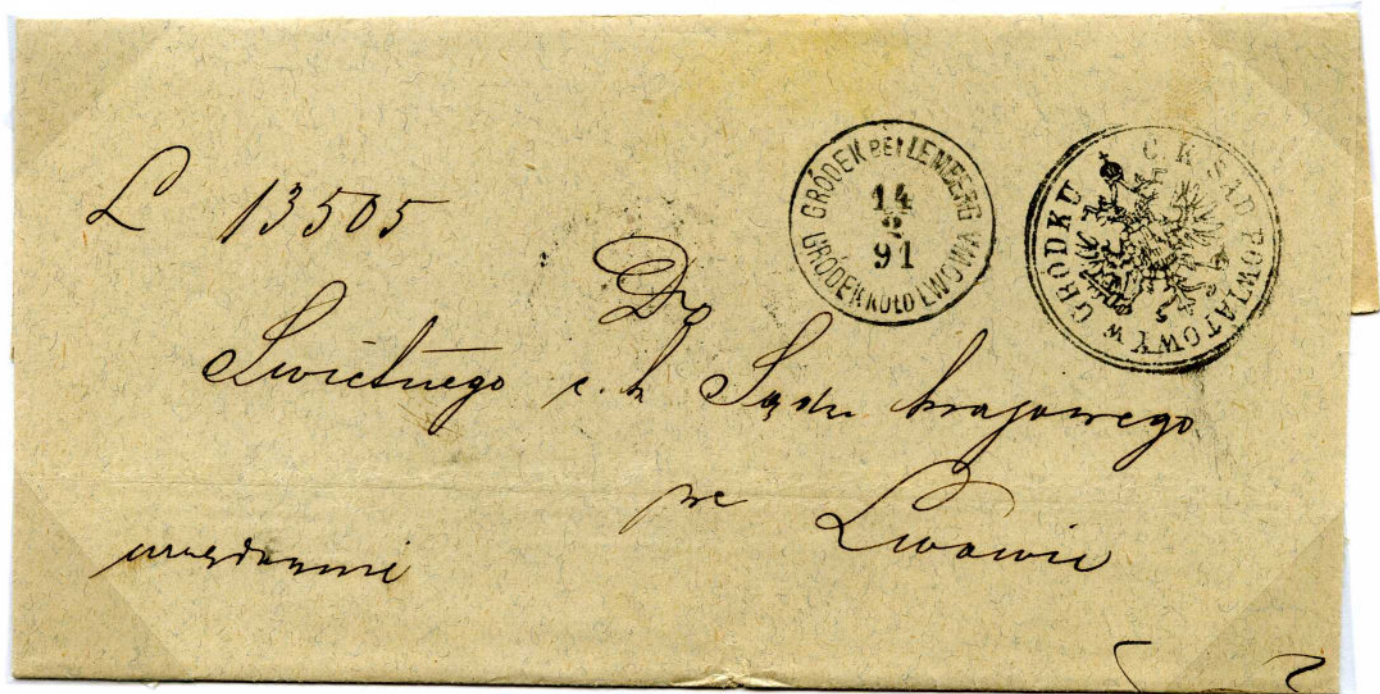 L 13505
GRÓDEK BEI LEMBERG
14
2
91
GRÓDEK KOŁO LWOWA
C. K. SĄD POWIATOWY W GRÓDKU
Do
Świetnego c. k. Sądu krajowego
we Lwowie